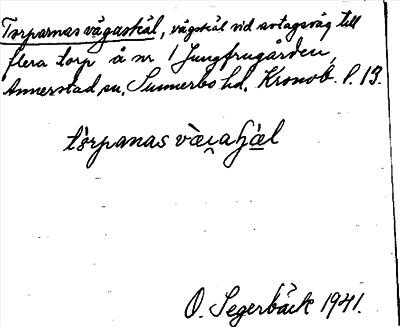 Torparnas vägaskäl, vägskäl vid avtagsväg till
flera torp å nr 1 Jungfrugården,
Annerstad sn, Sunnerbo hd, Kronob. l. 13.
tòrpanas vàɛi̯aʃǽl
O. Segerbäck 1941.